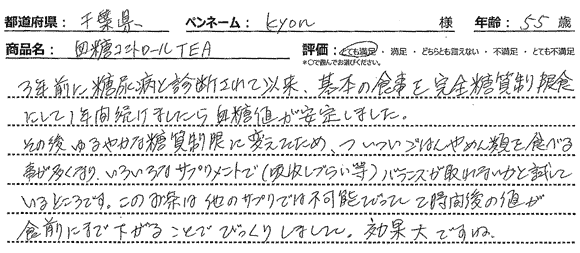 都道府県： 千葉県 ペンネーム： kyon 様 年齢： 55 歳
商品名： 血糖コントロールTEA 評価： とても満足 ・ 満足 ・ どちらとも言えない ・ 不満足 ・ とても不満足
*○で囲んでお選びください。
3年前に糖尿病と診断されて以来、基本の食事を完全糖質制限食
にして1年間続けましたら血糖値が安定しました。
その後ゆるやかな糖質制限に変えてため、ついついごはんやめん類を食べる
事が多くなり、いろいろなサプリメントで(吸収しづらい等)バランスが取れないかと試して
いるところです。このお茶は他のサプリでは不可能だった2時間後の値が
食前にまで下がることでびっくりしました。効果大ですね。